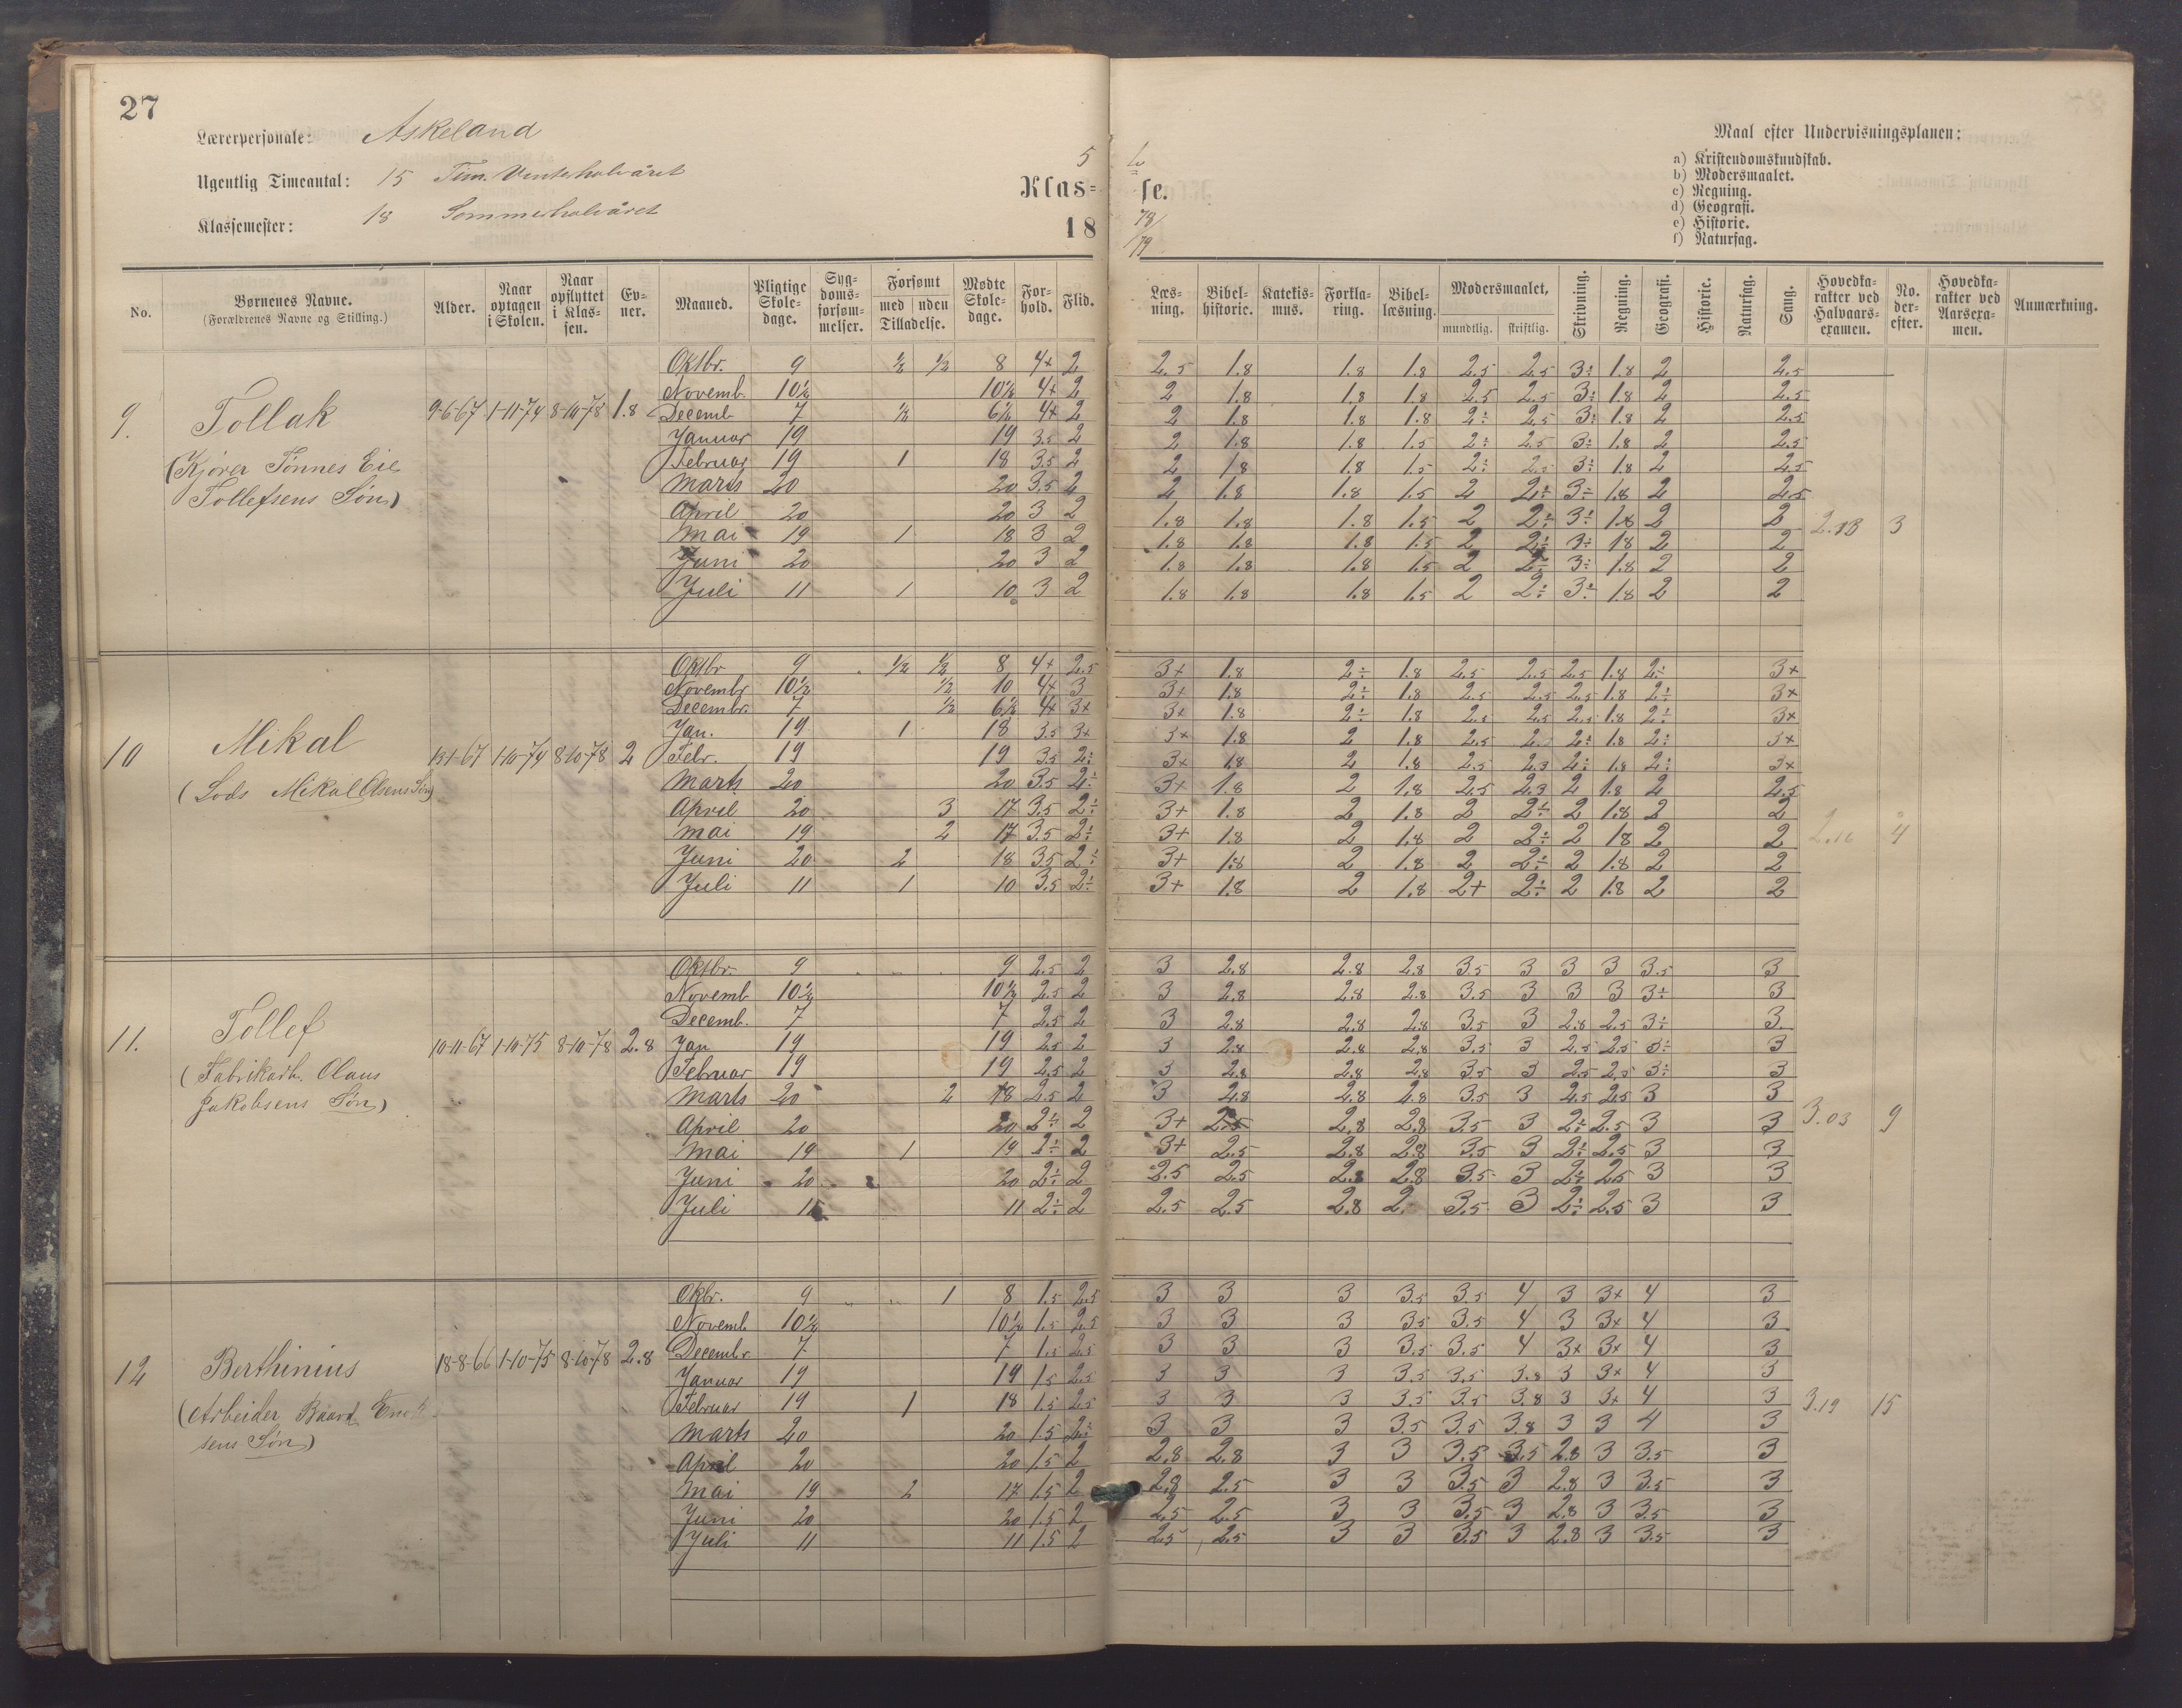 27
Lærerpersonale: Askeland
Ugentlig Timeantal: 15 Tim. Vinterhalvåret
Klassemester: 18 Sommerhalvåret
5 b
Klas= se.
18 78/79
Maal efter Undervisningsplanen:
a) Kristendomskundskab.
b) Modersmaalet.
c) Regning.
d) Geografi.
e) Historie.
f) Naturfag.
No. Børnenes Navne. (Forældrenes Navne og Stilling.) Alder. Naar optagen i Skolen. Naar opflyttet i Klassen. Evner. Maaned. Pligtige Skoledage. Sygdomsforsømmelser. Forsømt med nden Tilladelse. Mødte Skoledage. Forhold. Flid. Læsning. Bibelhistorie. Katekismus. Forklaring. Bibellæsning. Modersmaalet, mundtlig. skriftlig. Skrivning. Regning. Geografi. Historie. Naturfag. Sang. Hovedkarakter ved Halvaarsexamen. No. derefter. Hovedkarakter ved Aarsexamen. Anmærkning.
9. Tollak 9-6-67 1-11-74 8-10-78 1.8
(Kjører Tønnes Eie
Tollefsens Søn)
Oktbr. 9 ½ ½ 8 4+ 2 2.5 1.8 1.8 1.8 2.5 2.5 3÷ 1.8 2 2.5
Novemb. 10½ 10½ 4+ 2 2 1.8 1.8 1.8 2.5 2.5 3÷ 1.8 2 2.5
Decemb. 7 ½ 6½ 4+ 2 2 1.8 1.8 1.8 2÷ 2.5 3÷ 1.8 2 2.5
Januar 19 19 3.5 2 2 1.8 1.8 1.5 2÷ 2.5 3÷ 1.8 2 2.5
Februar 19 1 18 3.5 2 2 1.8 1.8 1.5 2÷ 2.5 3÷ 1.8 2 2.5
Marts 20 20 3.5 2 2 1.8 1.8 1.5 2 2÷ 3÷ 1.8 2 2.5
April 20 20 3 2 1.8 1.8 1.8 1.5 2 2÷ 3÷ 1.8 2 2
Mai 19 1 18 3 2 1.8 1.8 1.8 1.5 2 2÷ 3÷ 1.8 2 2 3
Juni 20 20 3 2 1.8 1.8 1.8 1.5 2 2÷ 3÷ 1.8 2 2
Juli 11 1 10 3 2 1.8 1.8 1.8 1.5 2 2÷ 3÷ 1.8 2 2
10 Mikal 13-1-67 1-10-74 8-10-78 2
(Lods Mikal Olsens Søn)
Oktbr 9 ½ ½ 8 4+ 2.5 3+ 1.8 2÷ 1.8 2.5 2.5 2.5 1.8 2÷ 3+
Novembr 10½ ½ 10 4+ 3 3+ 1.8 2÷ 1.8 2.5 2.5 2.5 1.8 2÷ 3+
Decembr. 7 ½ 6½ 4+ 3+ 3+ 1.8 2÷ 1.8 2.5 2.5 2.5 1.8 2÷ 3+
Jan. 19 1 18 3.5 3+ 3+ 1.8 2 1.8 2.5 2÷ 1.8 2÷ 3+
Febr. 19 19 3.5 2÷ 3+ 1.8 2 1.8 2.5 2.3 2÷ 1.8 2÷ 3+
Marts 20 20 3.5 2÷ 3+ 1.8 2 1.8 2.5 2.3 2 1.8 2 2.5
April 20 3 17 3.5 2÷ 3+ 1.8 2 1.8 2 2÷ 2 1.8 2 2
Mai 19 2 17 3.5 2÷ 3+ 1.8 2 1.8 2 2÷ 2 1.8 2 2 2.16 4
Juni 20 2 18 3.5 2÷ 3+ 1.8 2 1.8 2 2÷ 2 1.8 2 2
Juli 11 1 10 3.5 2÷ 3+ 1.8 2 1.8 2+ 2÷ 2 1.8 2 2
11. Tollef 10-11-67 1-10-75 8-10-78 2.8
(Fabrikarb. Olaus
Jakobsens Søn)
Oktbr. 9 9 2.5 2 3 2.8 2.8 2.8 3.5 3 3 3 3.5 3
Novemb 10½ 10½ 2.5 2 3 2.8 2.8 2.8 3.5 3 3 3 3÷ 3
Decemb. 7 7 2.5 2 3 2.8 2.8 2.8 3.5 3 2.8 2.5 3÷ 3
Jan 19 19 2.5 2 3 2.8 2.8 2.8 3.5 3 2.5 2.5 3÷ 3
Februar 19 19 2.5 2 3 2.8 2.8 2.8 3.5 3 2.5 2.5 3÷ 3
Marts 20 2 18 2.5 2 3 2.8 2.8 2.8 3.5 3 2.5 2.5 3 3
April 20 20 2÷ 2 3+ 2.5 2.8 2.8 3.5 3 2÷ 2.5 3 3 3.03 9
Mai 19 1 19 2÷ 2 3+ 2.5 2.8 2.8 3.5 3 2÷ 2.5 3 3
Juni 20 20 2÷ 2 2.5 2.5 2.8 2.8 3.5 3 2÷ 2.5 3 3
Juli 11 2÷ 2 2.5 2.5 2.8 2. 3.5 3 2÷ 2.5 3 3
12 Berthinius 18-8-66 1-10-75 8-10-78 2.8
(Arbeider Baard
sens Søn)
Okbr. 9 1 8 1.5 2.5 3 3 3 3.5 3.5 4 3 3+ 4 3
Novemb. 10½ 10½ 1.5 2.5 3 3 3 3.5 3.5 4 3 3+ 4 3
Decembr 7 7 1.5 2.5 3 3 3 3.5 3.5 4 3+ 3+ 4 3
Januar 19 19 1.5 2.5 3 3 3 3.5 3.5 3.8 3 3+ 4 3
Februar 19 1 18 1.5 2.5 3 3 3 3.5 3.5 3.8 3 3+ 4 3 3.19 15
Marts 20 20 1.5 2÷ 3 3 3 3.5 3.5 3.8 3 3 4 3
April 20 20 1.5 2 2.8 2.8 3 3 3.5 3.5 2.8 3 3.5 3
Mai 19 2 17 1.5 2 2.8 2.5 3 3 3.5 3 2.8 3 3.5 3
Juni 20 20 1.5 2 2.5 2.5 3 3 3.5 3 2.8 3 3.5 3
Juli 11 11 1.5 2 2.5 2.5 3 3 3.5 3 2.8 3 3.5 3